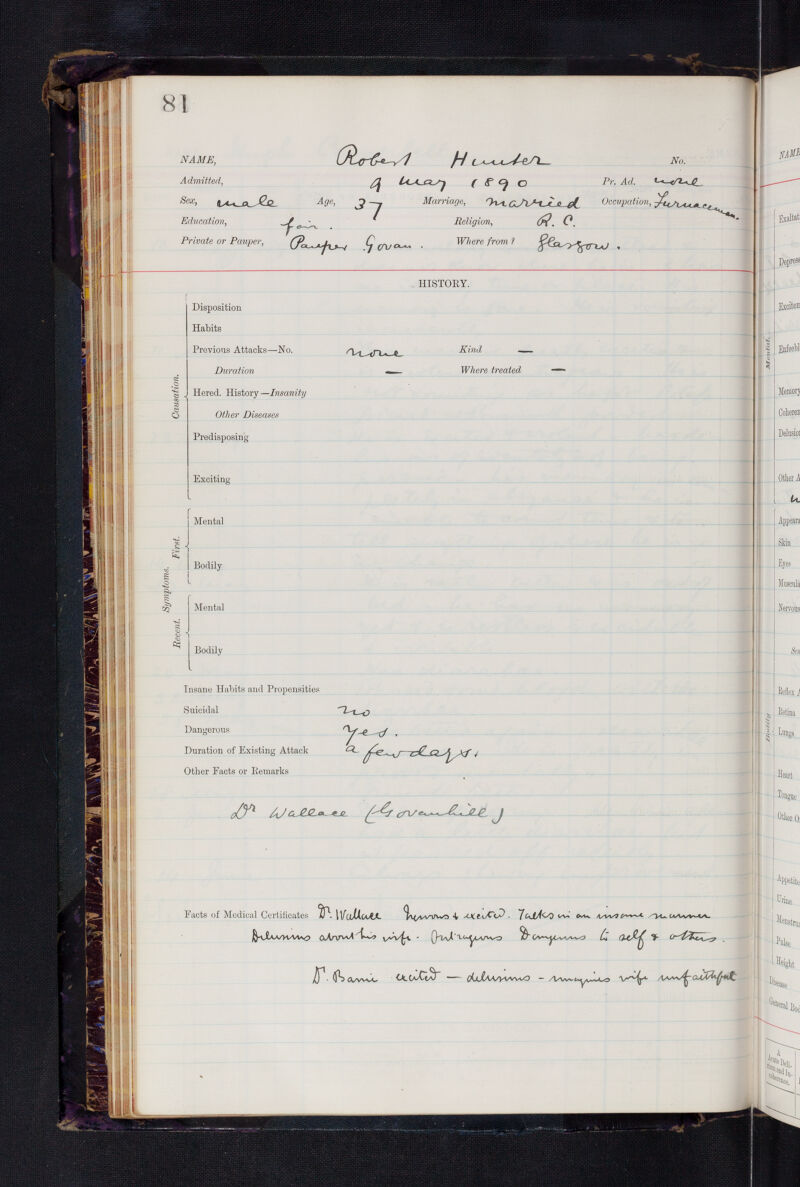 81
NAME, Robert Hunter No.
Admitted, 9 May 1890 Pr. Ad. none
Sex, male Age, 37 Marriage, married Occupation, Furnaceman.
Education, fair. Religion, R. C.
Private or Pauper, Pauper Govan. Where from? Glasgow.
HISTORY.
Causation.
Disposition
Habits
Previous Attacks—No. none Kind —
Duration — Where treated —
Hered. History—Insanity
Other Diseases
Predisposing
Exciting
Symptoms.
First.
Mental
Bodily
Recent.
Mental
Bodily
Insane Habits and Propensities
Suicidal no
Dangerous Yes.
Duration of Existing Attack a few days.
Other Facts or Remarks
Dr Wallace (Govanhill)
Facts of Medical Certificates Dr. Wallace nervous & excited. Talks in an insane manner
Delusions about his wife. Outrageous Dangerous to self & others.
Dr. Barrie excited — delusions - imagines wife unfaithful
NAME
Mental.
Memory
Other A
Skin
Eyes
Bodily
Retina
Lungs
Heart
Tongue
Urine
Pulse
Height
Disease